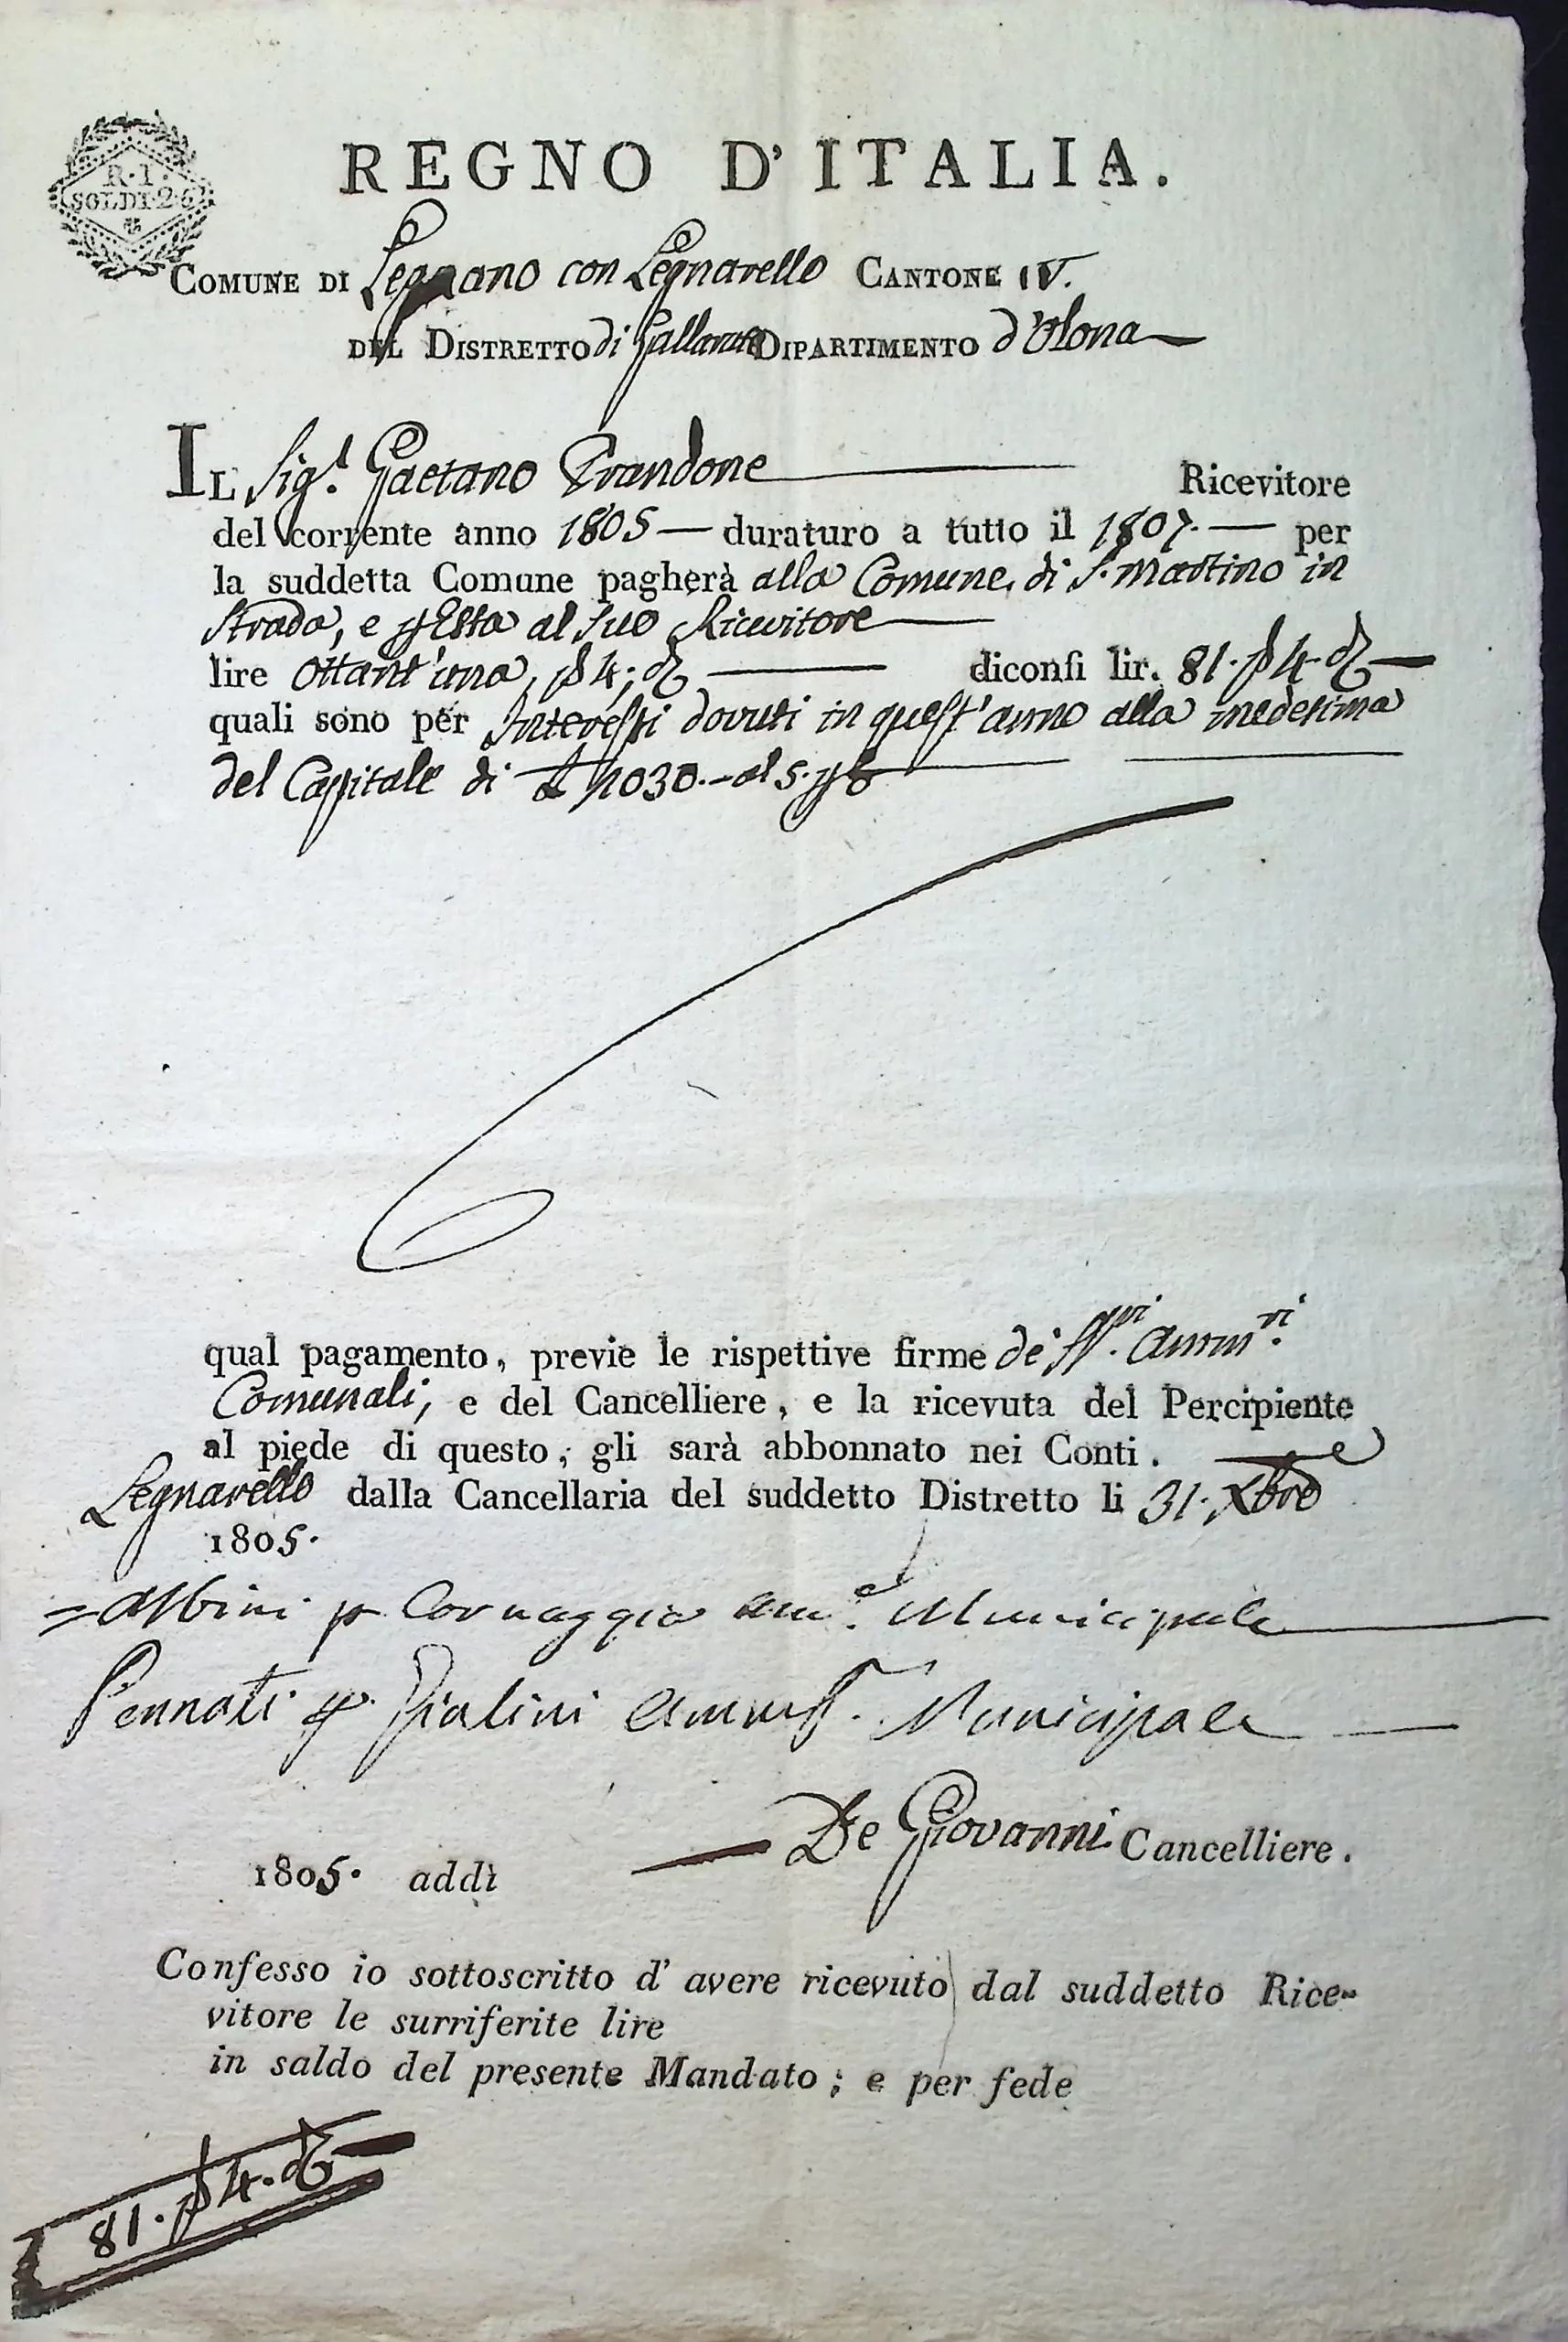 R. I.
SOLDI 2.6
REGNO D'ITALIA.
COMUNE DI Legnano con Legnarello CANTONE IV.
DEL DISTRETTO di Gallarate DIPARTIMENTO d'Olona
IL Sig.r Gaetano Prandone Ricevitore
del corrente anno 1805 — duraturo a tutto il 1807. — per
la suddetta Comune pagherà alla Comune di S. Martino in
Strada, e p Essa al suo Ricevitore
lire Ottant'una, s 4; d — diconsi lir. 81. s 4. d —
quali sono per Interessi dovuti in quest'anno alla medesima
del Capitale di £ 2030. - al
qual pagamento, previe le rispettive firme de' SS.ri Amm.ri
Comunali, e del Cancelliere, e la ricevuta del Percipiente
al piede di questo, gli sarà abbonnato nei Conti.
Legnarello dalla Cancellaria del suddetto Distretto li 31. Xbre
1805.
= Albini p Cornaggia Am.e Municipale
Pennati p. Municipale
De Giovanni Cancelliere.
1805. addì
Confesso io sottoscritto d' avere ricevuto dal suddetto Rice-
vitore le surriferite lire
in saldo del presente Mandato; e per fede
81. s 4. d —